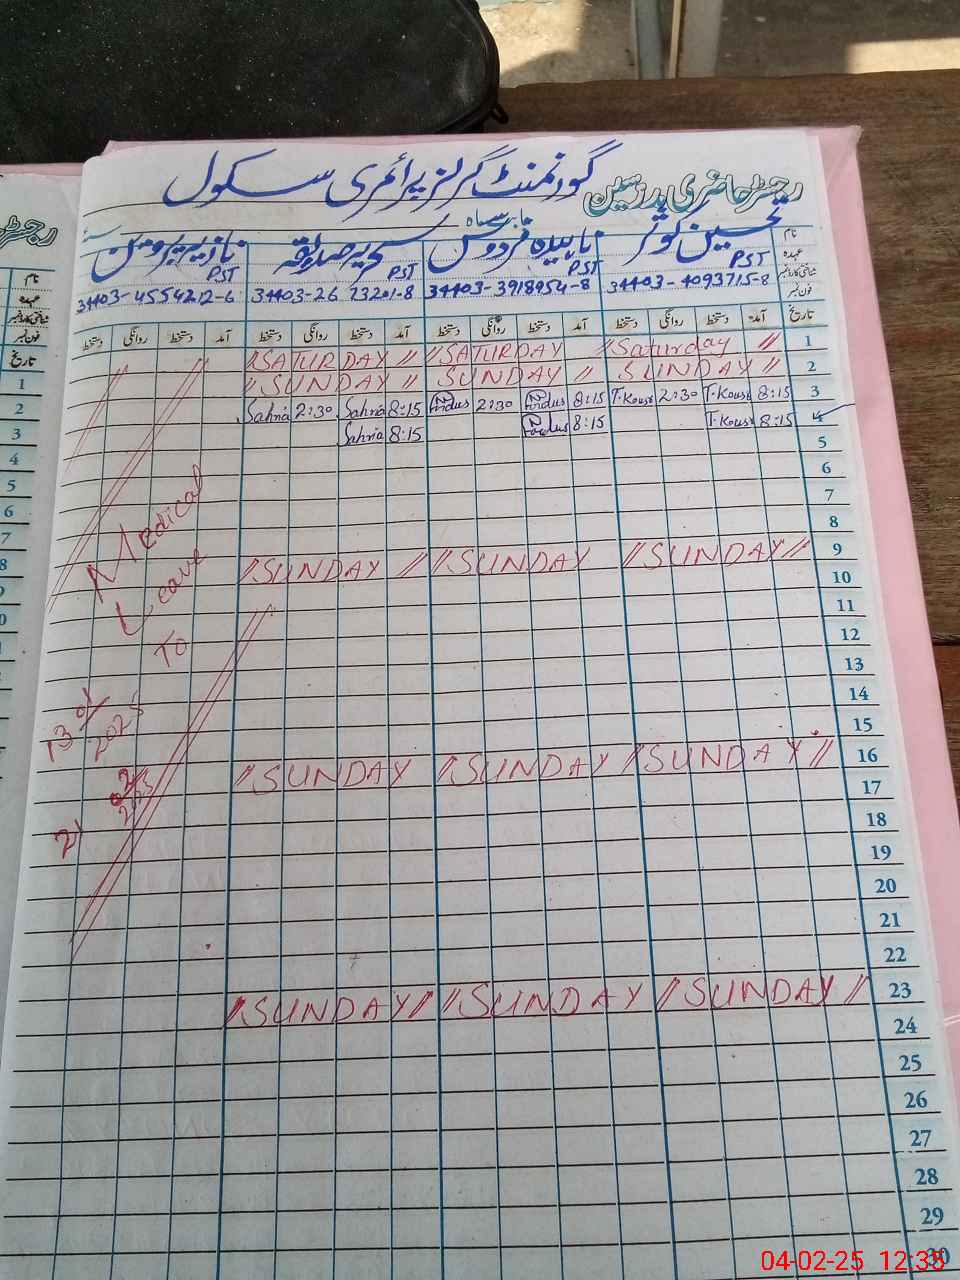 گورنمنٹ گرلز پرائمری سکول
رجسٹر حاضری مدرسین
نام تحسین کوثر ناہیدہ فردوس سحریہ صدیقہ نازیہ پروین
عہدہ PST PST PST PST
شناختی کارڈ نمبر 34403-4093715-8 34403-3918954-8 34403-26 73201-8 34403-4554212-6
فون نمبر
تاریخ آمد دستخط روانگی دستخط آمد دستخط روانگی دستخط آمد دستخط روانگی دستخط آمد دستخط روانگی دستخط
//SATURDAY// //SATURDAY //Saturday // 1
//SUNDAY// SUNDAY // SUNDAY// 2
Sahria 2:30 Sahria 8:15 Firdus 2:30 Firdus 8:15 T.Kousr 2:30 T.Kousr 8:15 3
Sahria 8:15 Firdus 8:15 T.Kousr 8:15 4
5
6
7
8
//SUNDAY // //SUNDAY //SUNDAY// 9
10
11
12
13
14
15
//SUNDAY //SUNDAY //SUNDAY// 16
17
18
19
20
21
22
//SUNDAY// //SUNDAY //SUNDAY // 23
24
25
26
27
28
29
30
Medical
Leave
To
13 01/2025
21 02/2025
رجسٹر
نام
عہدہ
شناختی کارڈ نمبر
فون نمبر
تاریخ
1
2
3
4
5
6
7
8
04-02-25 12:35